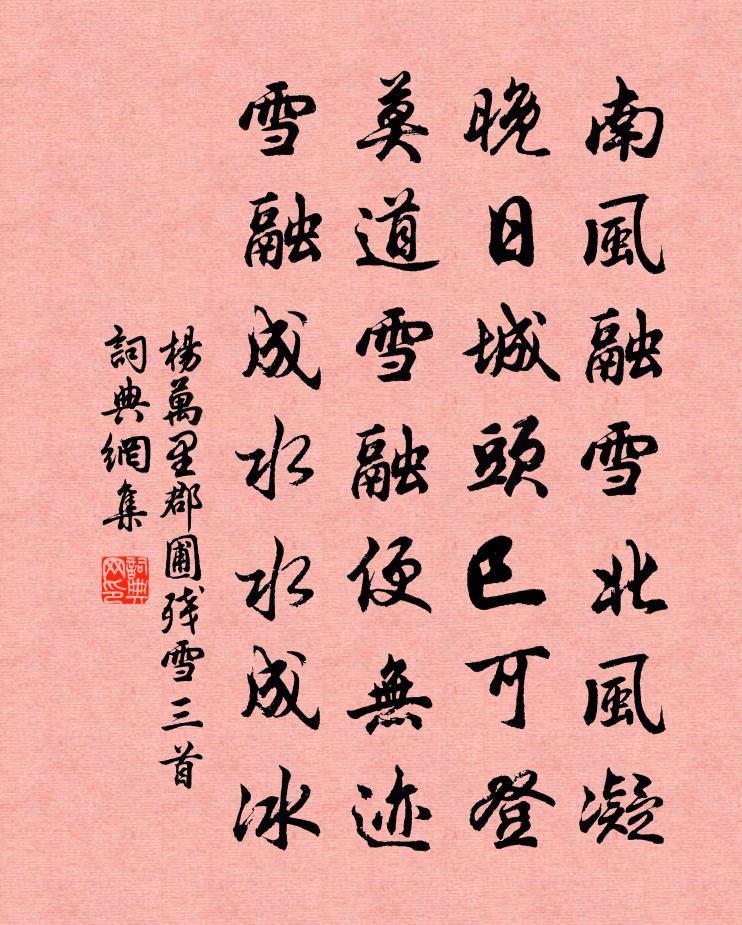 南風融雪北風凝
晚日城頭已可登
莫道雪融便無迹
雪融成水水成冰
楊萬里郡圃残雪三首
詞典網集
詞典网印